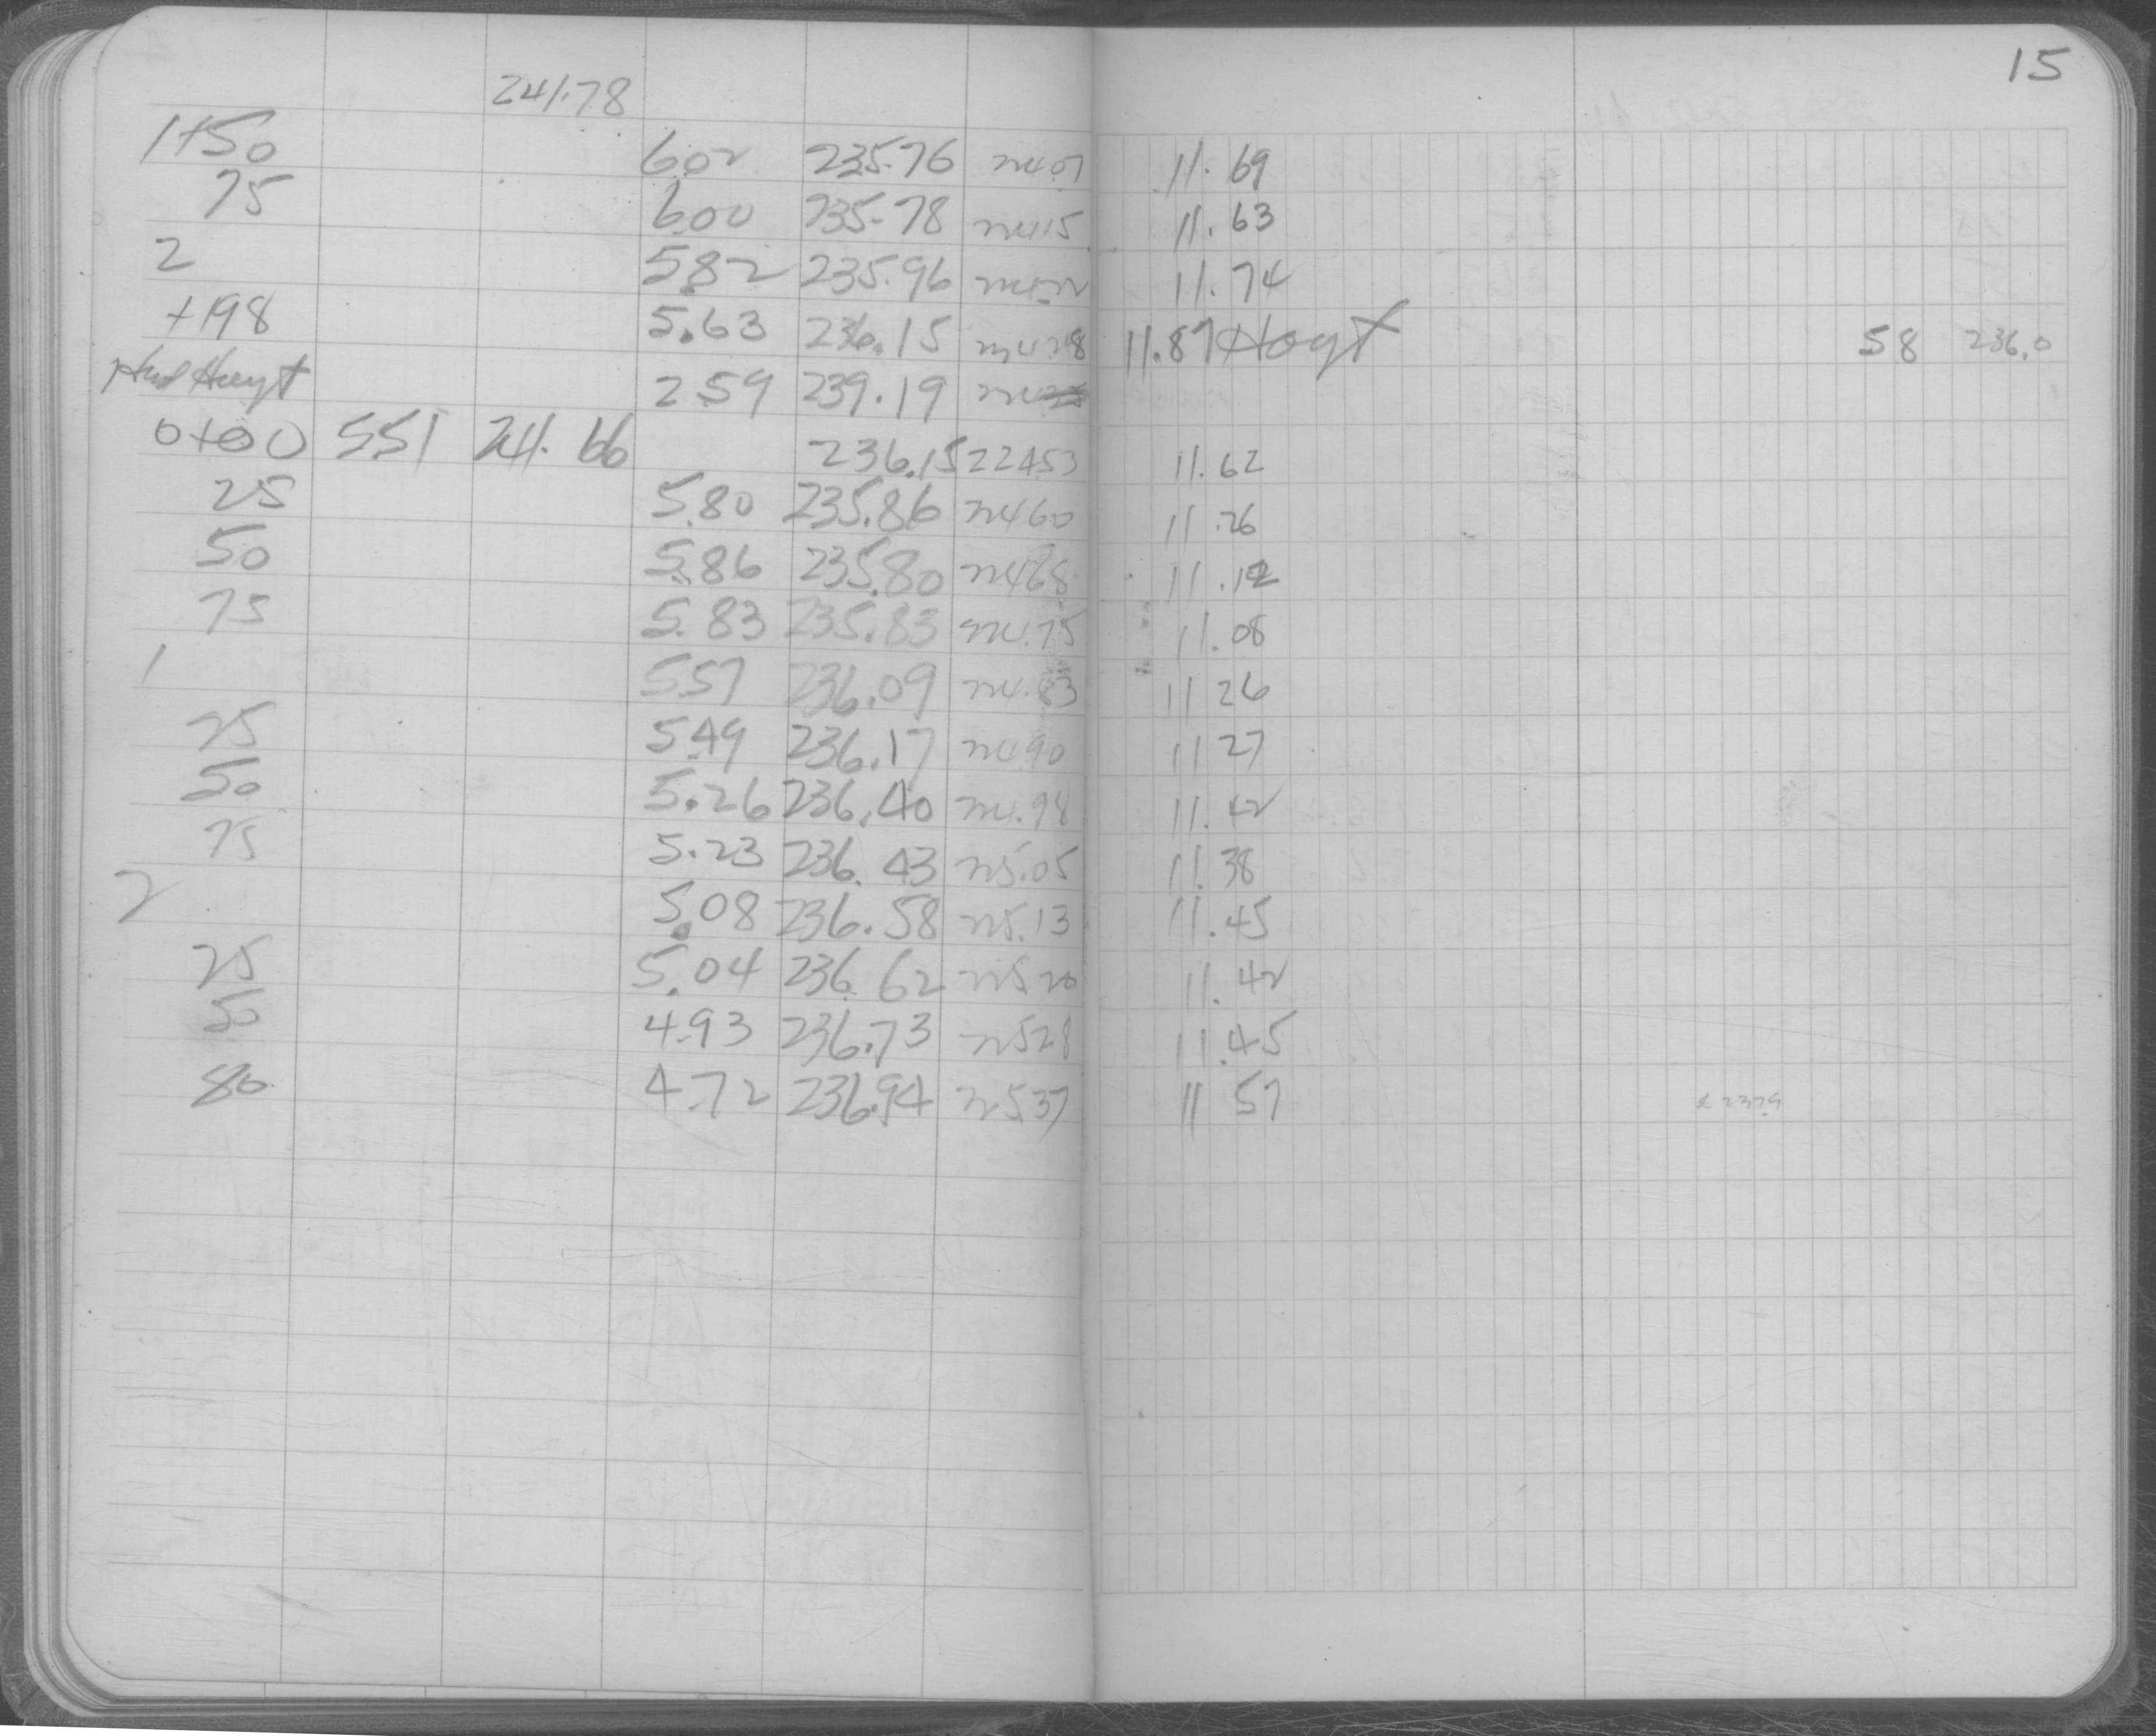 15
241.78
1+50 6.02 235.76 224.07 11.69
75 6.00 235.78 224.15 11.63
2 5.82 235.96 224.22 11.74
+198 5.63 236.15 224.28 11.87 Hoyt 58 236.0
Hyd Hoyt 2.59 239.19
0+00 5.51 241.66 236.15 224.53 11.62
25 5.80 235.86 224.60 11.26
50 5.86 235.80 224.68 11.12
75 5.83 235.83 224.75 11.08
1 5.57 236.09 224.83 11 26
25 5.49 236.17 224.90 11 27
50 5.26 236.40 224.98 11.42
75 5.23 236.43 225.05 11.38
2 5.08 236.58 225.13 11.45
25 5.04 236.62 225.20 11.42
50 4.93 236.73 225.28 11.45
80 4.72 236.94 225.37 11 57